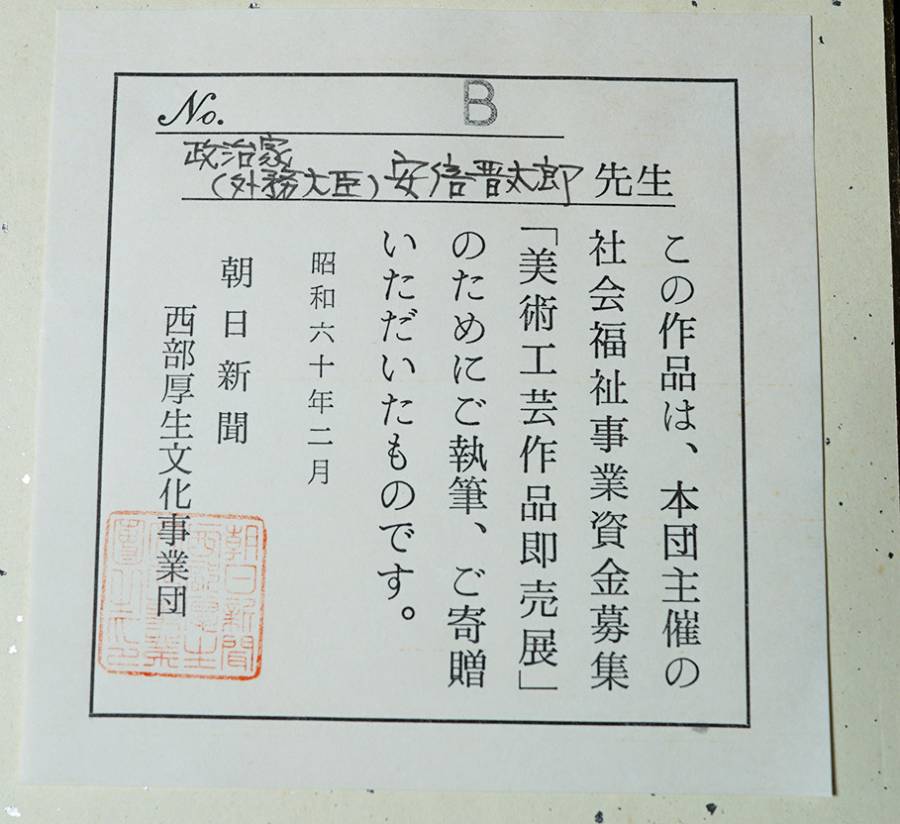 No. B
政治家
(外務大臣) 安倍晋太郎 先生
この作品は、本団主催の
社会福祉事業資金募集
「美術工芸作品即売展」
のためにご執筆、ご寄贈
いただいたものです。
昭和六十年二月
朝日新聞
西部厚生文化事業団
朝日新聞